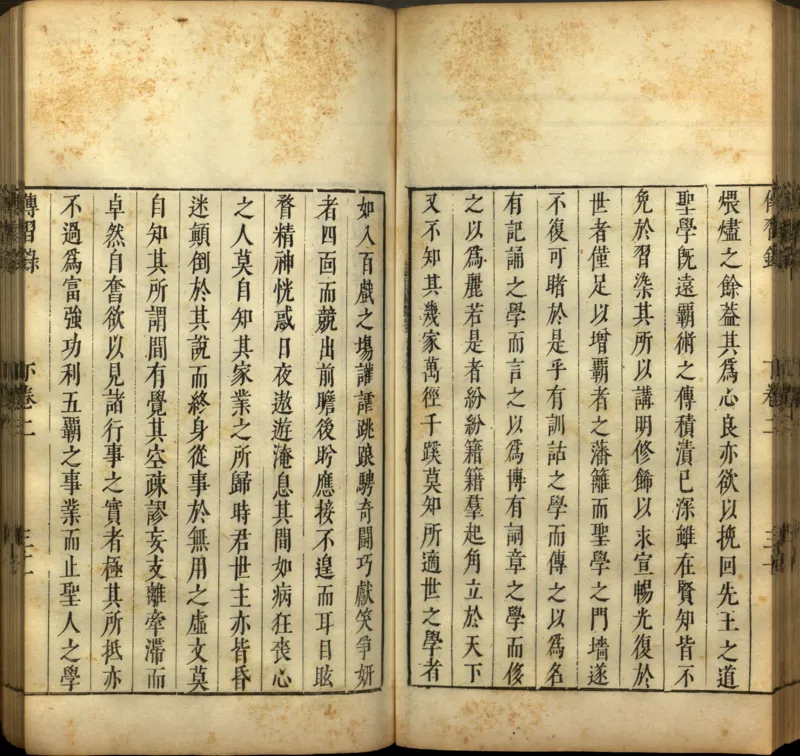 煨燼之餘葢其爲心良亦欲以挽回先王之道
聖學旣遠霸術之傳積漬已深雖在賢知皆不
免於習染其所以講明修餙以求宣暢光復於
世者僅足以增霸者之藩籬而聖學之門墻遂
不復可睹於是乎有訓詁之學而傳之以爲名
有記誦之學而言之以爲博有詞章之學而侈
之以爲麗若是者紛紛籍籍羣起角立於天下
又不知其幾家萬徑千蹊莫知所適世之學者
如入百戲之塲讙謔跳踉騁奇鬭巧獻笑爭妍
者四面而競出前瞻後盻應接不遑而耳目眩
瞀精神恍惑日夜遨遊淹息其間如病狂喪心
之人莫自知其家業之所歸時君世主亦皆昏
迷顛倒於其說而終身從事於無用之虛文莫
自知其所謂間有覺其空疎謬妄支離牽滯而
卓然自奮欲以見諸行事之實者極其所抵亦
不過爲富強功利五霸之事業而止聖人之學
傳習錄
下卷二